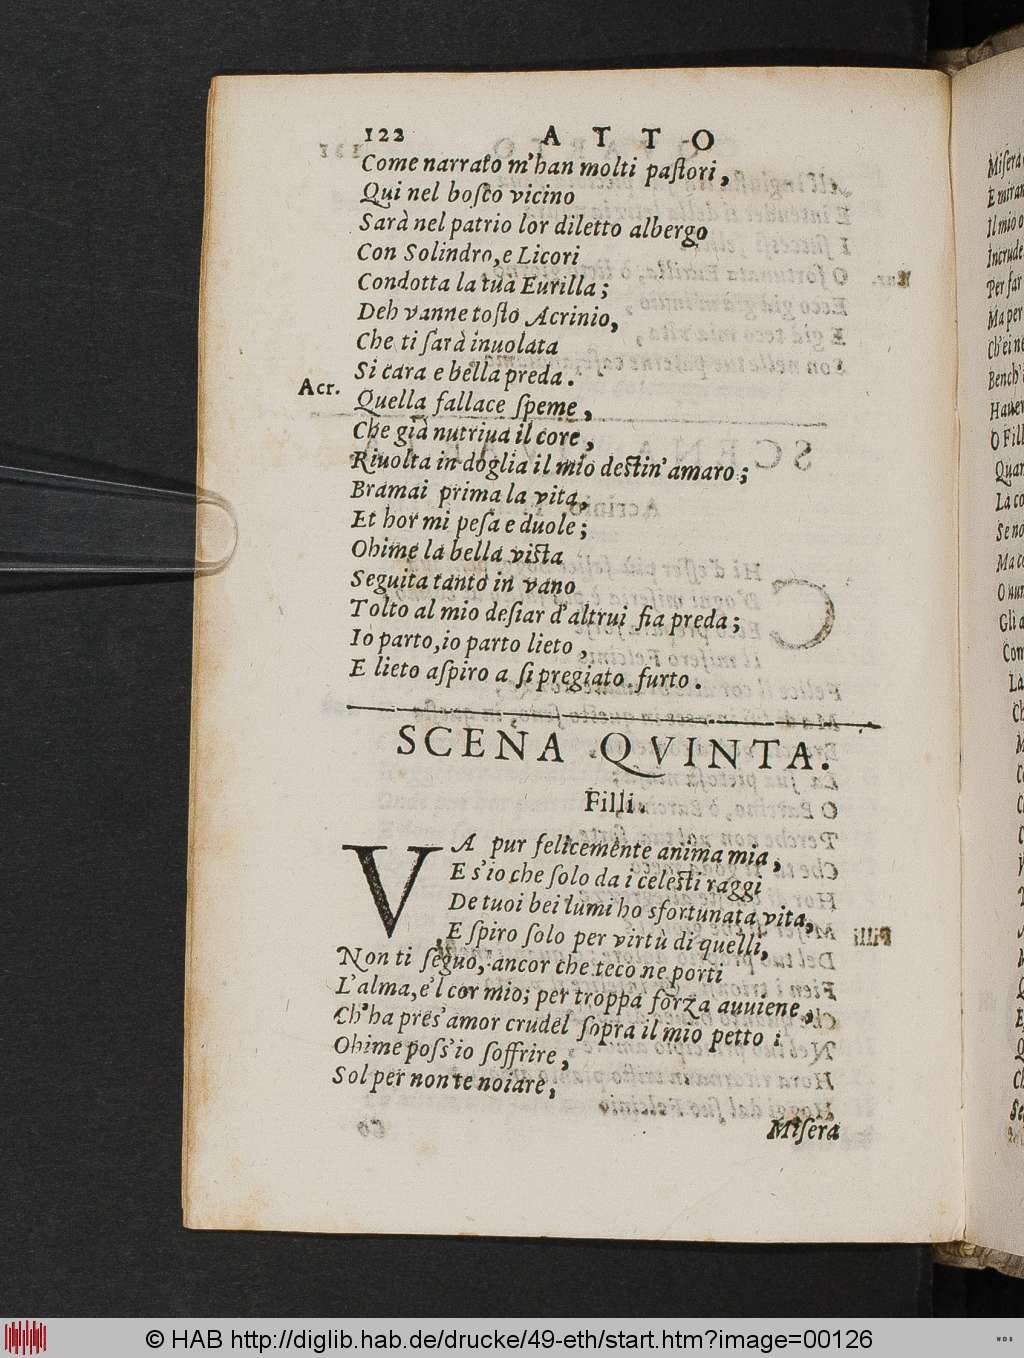 122 ATTO
Come narrato m'han molti paſtori,
Qui nel boſco vicino
Sarà nel patrio lor diletto albergo
Con Solindro, e Licori
Condotta la tua Eurilla;
Deh vanne toſto Acrinio,
Che ti ſarà inuolata
Si cara e bella preda.
Acr. Quella fallace ſpeme,
Che già nutriua il core,
Riuolta in doglia il mio deſtin' amaro;
Bramai prima la vita,
Et hor mi peſa e duole;
Ohime la bella viſta
Seguita tanto in vano
Tolto al mio deſiar d'altrui fia preda;
Io parto, io parto lieto,
E lieto aſpiro a ſi pregiato furto.
SCENA QVINTA.
Filli.
VA pur felicemente anima mia,
E s'io che ſolo da i celeſti raggi
De tuoi bei lumi ho sfortunata vita,
E ſpiro ſolo per virtù di quelli,
Non ti ſeguo, ancor che teco ne porti
L'alma, e'l cor mio; per troppa forza auuiene,
Ch'ha preſ' amor crudel ſopra il mio petto:
Ohime poſs'io ſoffrire,
Sol per non te noiare,
Miſera
Miſera
E miran
Il mio o
Incrude
Per far
Ma per
Ch'ei ne
Bench'
Hauer
O Fill
Quan
La co
Se no
Ma ce
O nun
Gli a
Com
La
© HAB http://diglib.hab.de/drucke/49-eth/start.htm?image=00126